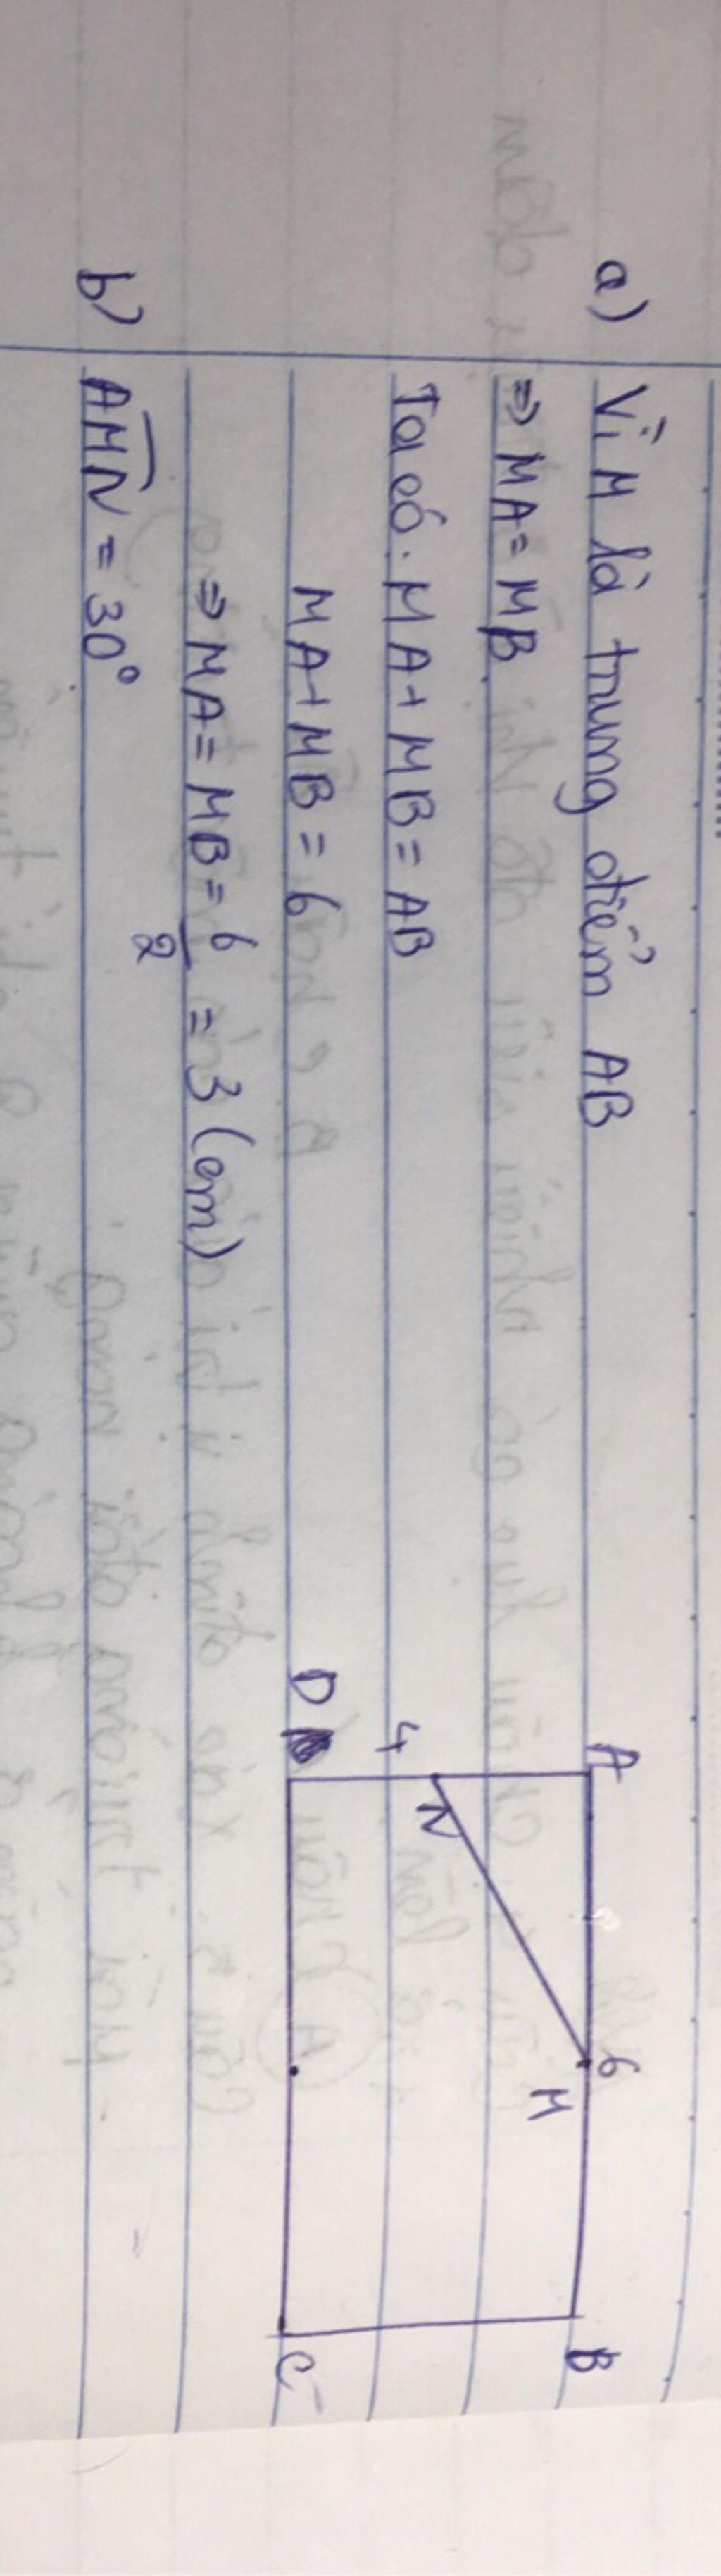 a) Vì M là trung điểm AB
⇒ MA = MB
Ta có. MA + MB = AB
MA + MB = 6
⇒ MA = MB = 6/2 = 3 (cm)
b) AMN = 30°
A 6 B
M
4 N
D C